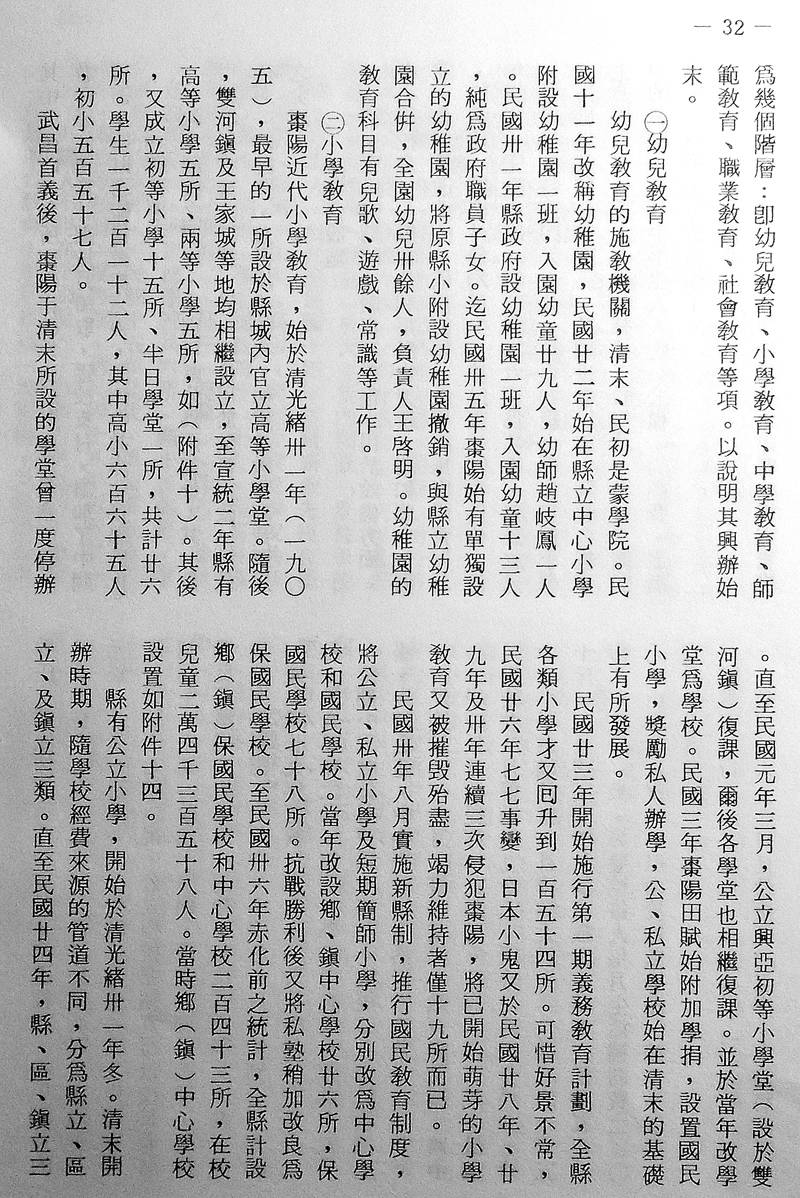 — 32 —
爲幾個階層：卽幼兒敎育、小學敎育、中學敎育、師
範敎育、職業敎育、社會敎育等項。以說明其興辦始
末。
㈠幼兒敎育
幼兒敎育的施敎機關，清末、民初是蒙學院。民
國十一年改稱幼稚園，民國廿二年始在縣立中心小學
附設幼稚園一班，入園幼童廿九人，幼師趙岐鳳一人
。民國卅一年縣政府設幼稚園一班，入園幼童十三人
，純爲政府職員子女。迄民國卅五年棗陽始有單獨設
立的幼稚園，將原縣小附設幼稚園撤銷，與縣立幼稚
園合併，全園幼兒卅餘人，負責人王啓明。幼稚園的
敎育科目有兒歌、遊戲、常識等工作。
㈡小學敎育
棗陽近代小學敎育，始於清光緒卅一年（一九〇
五），最早的一所設於縣城內官立高等小學堂。隨後
，雙河鎭及王家城等地均相繼設立，至宣統二年縣有
高等小學五所、兩等小學五所，如（附件十）。其後
，又成立初等小學十五所、半日學堂一所，共計廿六
所。學生一千二百一十二人，其中高小六百六十五人
，初小五百五十七人。
武昌首義後，棗陽于清末所設的學堂曾一度停辦
。直至民國元年三月，公立興亞初等小學堂（設於雙
河鎭）復課，爾後各學堂也相繼復課。並於當年改學
堂爲學校。民國三年棗陽田賦始附加學捐，設置國民
小學，獎勵私人辦學，公、私立學校始在清末的基礎
上有所發展。
民國廿三年開始施行第一期義務敎育計劃，全縣
各類小學才又回升到一百五十四所。可惜好景不常，
民國廿六年七七事變，日本小鬼又於民國廿八年、廿
九年及卅年連續三次侵犯棗陽，將已開始萌芽的小學
敎育又被摧毀殆盡，竭力維持者僅十九所而已。
民國卅年八月實施新縣制，推行國民敎育制度，
將公立、私立小學及短期簡師小學，分別改爲中心學
校和國民學校。當年改設鄉、鎭中心學校廿六所，保
國民學校七十八所。抗戰勝利後又將私塾稍加改良爲
保國民學校。至民國卅六年赤化前之統計，全縣計設
鄉（鎭）保國民學校和中心學校二百四十三所，在校
兒童二萬四千三百五十八人。當時鄉（鎭）中心學校
設置如附件十四。
縣有公立小學，開始於清光緒卅一年冬。清末開
辦時期，隨學校經費來源的管道不同，分爲縣立、區
立、及鎭立三類。直至民國廿四年，縣、區、鎭立三